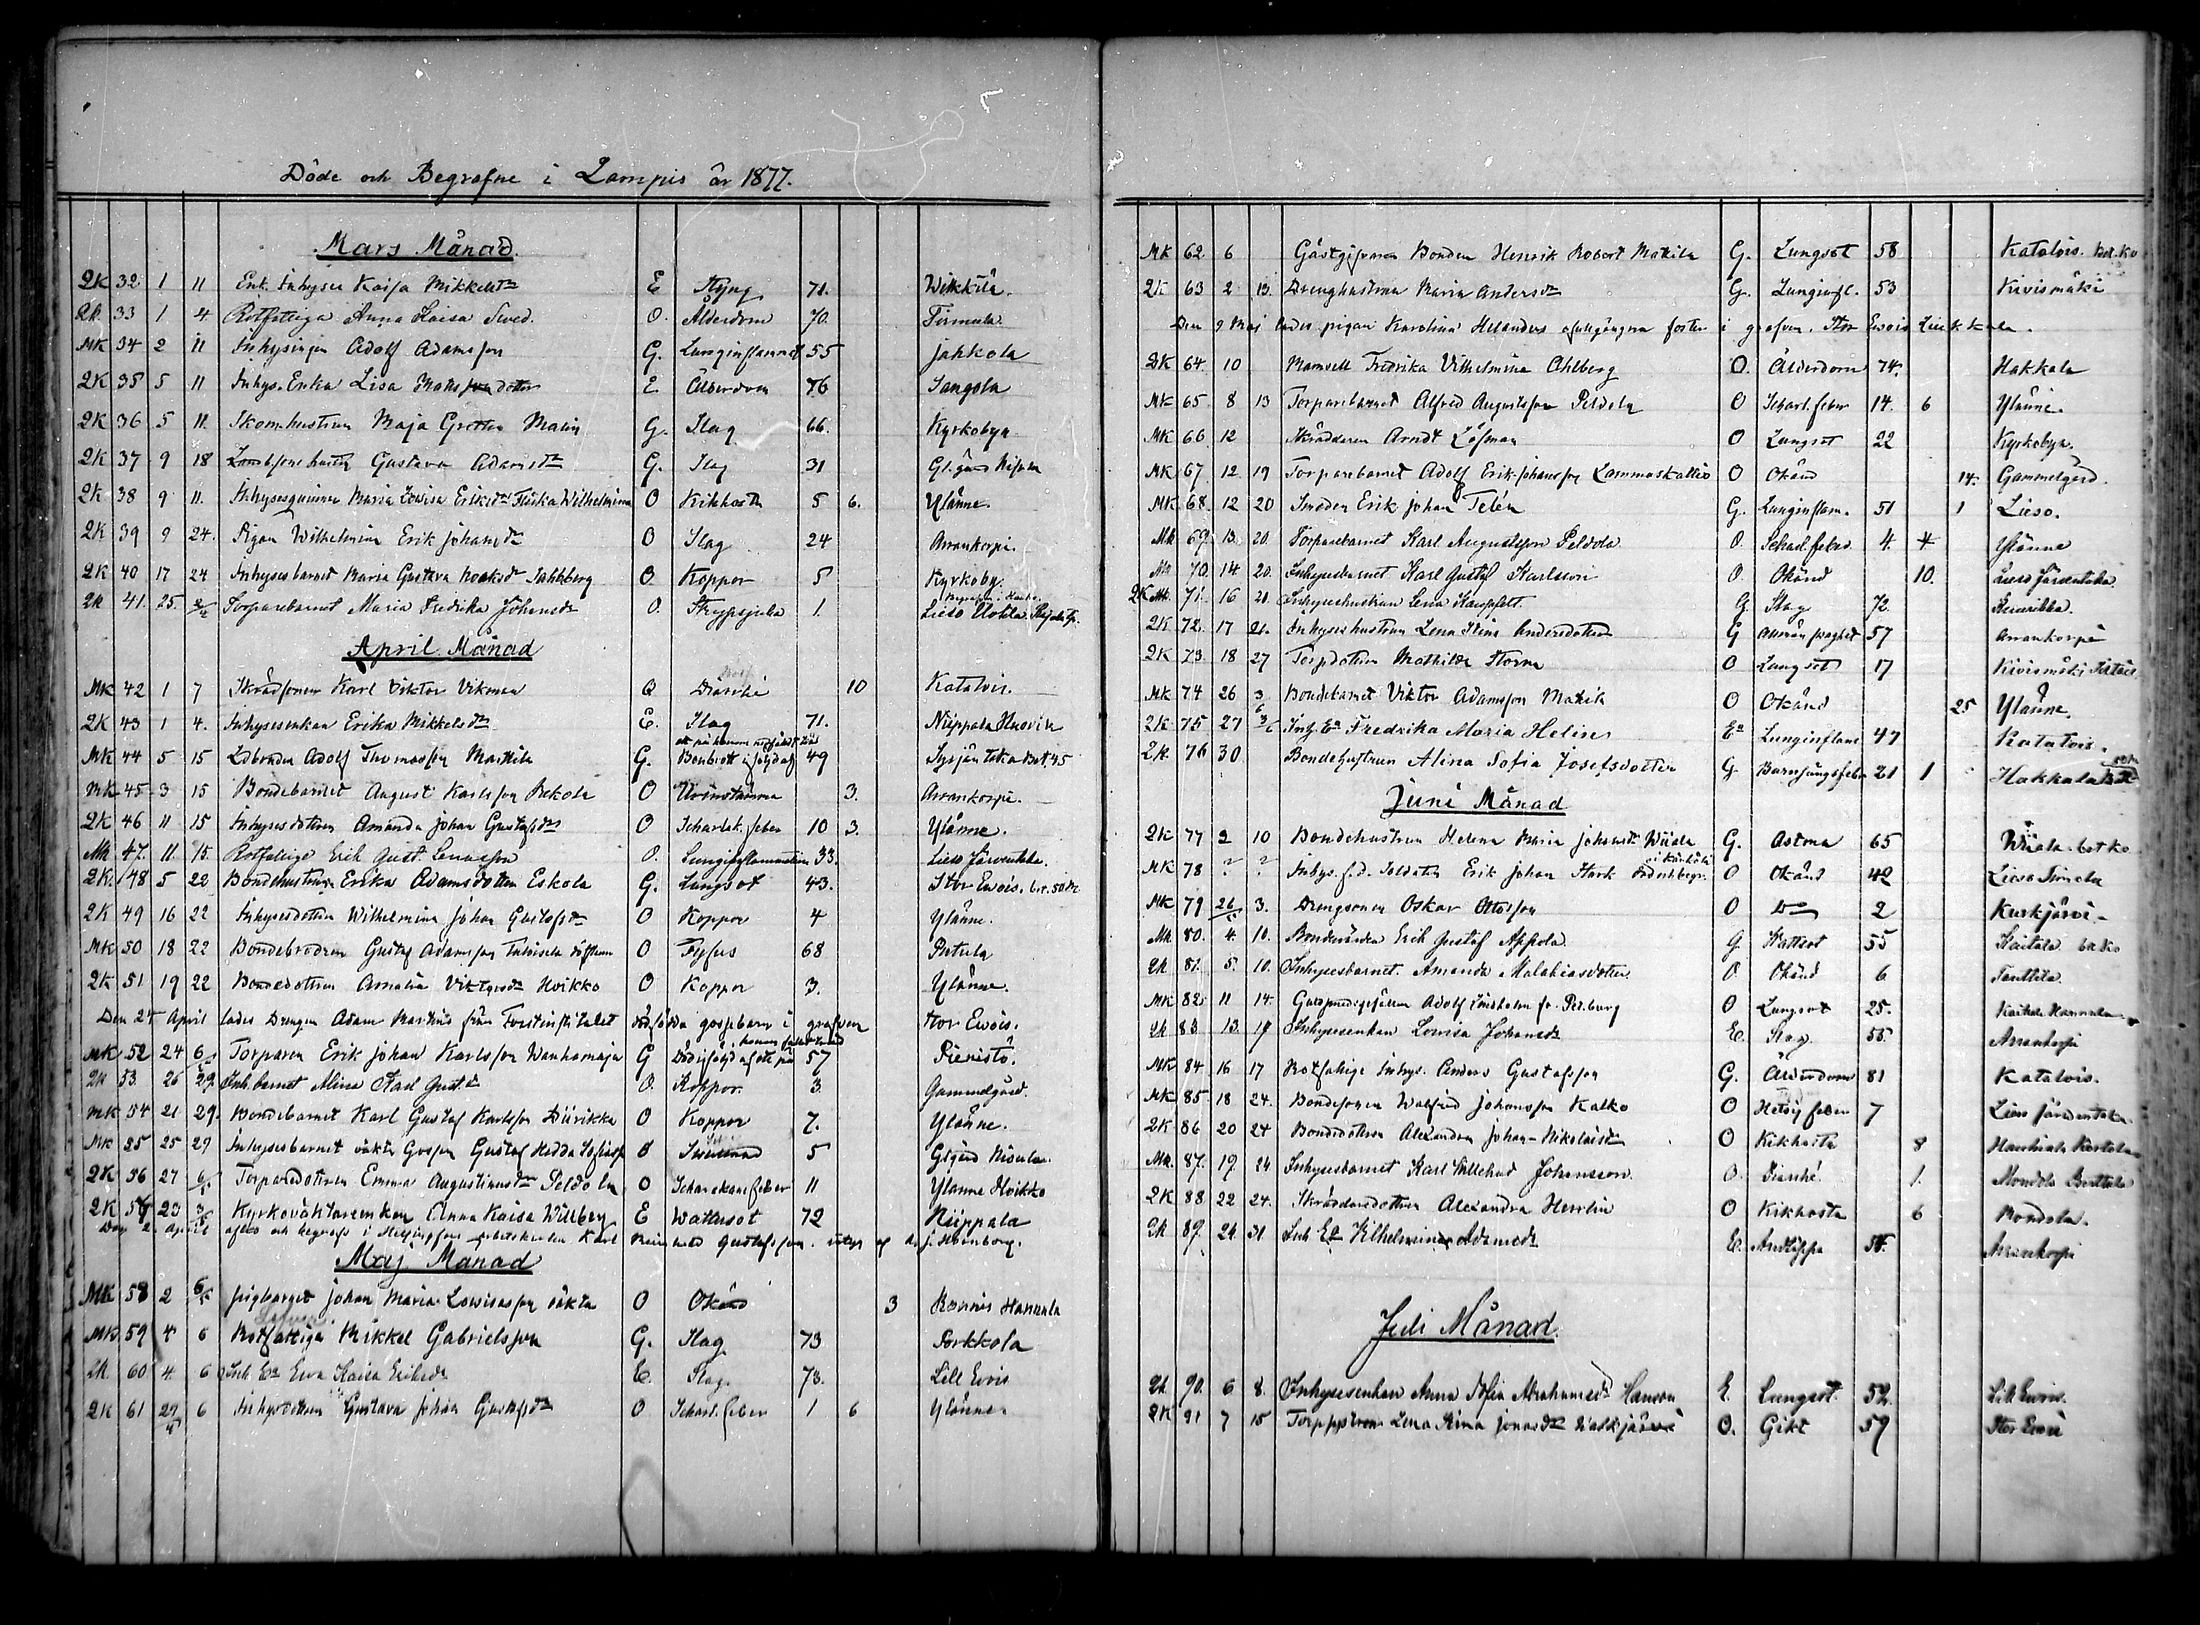 Döde och Begrafne i Lampis år 1877.
Mars Månad.
QK 32 1 11 Enk. Inhyses Kaisa Mikkelsdr E Styng 71. Wikkilä.
QK 33 1 4 Rotfattiga Anna Kaisa Swed. O. Ålderdom 70. Tirmula.
MK 34 2 11 Inhysingen Adolf Adamsson G. Lunginflammat 55 Jahkola
QK 35 5 11 Inhys. Enka Lisa Matsdotter E. Ålderdom 76 Sangola
QK 36 5 11. Skomhustrun Maja Gretta Malin G. Slag 66. Kyrkobyn
QK 37 9 18 Gustava Adamsdr G. Slag 31
QK 38 9 11. Inhysesqvinna Maria Lovisa Eriksdr Wilhelmina O Kikhosta 5 6. Ylänne.
QK 39 9 24. Pigan Wilhelmina Erik Johansdr O Slag 24 Arrankorpi.
QK 40 17 24 Inhysesbarnet Maria Gustava Noaksdr Sahlberg O. Koppor 5 Kyrkoby.
QK 41. 25. Torparebarnet Maria Fredrika Johansdr O. Strypsjuka 1. Lieso
April Månad
MK 42 1 7 Skrädsonen Karl Viktor Vikman O Diarrhé 10 Katalois.
QK 43 1 4. Inhysesenkan Erika Mikkelsdr E. Slag 71. Niippala
MK 44 5 15 Adolf Thomasson Mattila G. Benbrott i följd af 49
MK 45 3 15 Bondebarnet August Karlsson Rekola O 3. Arrankorpi.
QK 46 11 15 Inhysesdottren Amanda Johan Gustafsdr O Scharlak. feber 10 3. Ylänne.
MK 47. 11. 15. Rotfattige Erik Gust. Lenasson O. Lunginflammation 33. Lieso Järventaka.
QK. 48 5 22 Bondehustrun Erika Adamsdotter Eskola G. Lungsot 43. Stor Ewois.
QK 49 16 22 Inhysesdottren Wilhelmina Johan Gustafsdr O Koppor 4 Ylänne.
MK 50 18 22 Bondebrodren Gustaf Adamsson O Tyfus 68 Putula
QK 51 19 22 Bondedottren Amalia Viktorsdr Hvikko O Koppor 3. Ylänne.
Den 24 April lades Drengen Adam Martins från Forstinstitutet dödfödda gossebarn i grafven Stor Ewois.
MK 52 24 6 Torparen Erik Johan Karlsson Wanhamaja G 57 Pieristö.
QK 53. 26 29. Inh. barnet Alina Karl Gust. dr O. Koppor. 3 Gammelgård.
MK 54 21 29. Bondebarnet Karl Gustaf Karlsson Diirikka O Koppor 7. Ylänne.
MK 55 25 29 Inhysesbarnet oäkta Gossen Gustaf Hedda O 5
QK 56 27 Torparedottren Emma Augustinusdr Peldola O Scharlakansfeber 11 Ylänne Hvikko
QK 57 23 Kyrkoväktareenkan Anna Kaisa Willberg E Wattusot 72 Niippala
Den 2 April afled och begrofs i Helsingfors Karl Gustafsson.
Maj Månad
MK 58 2 Pigbarnet Johan Maria Lowisasson oäkta O Okänd 3 Ronnis Hannula
MK 59 4 6 Rotfattiga Mikkel Gabrielsson G. Slag 73 Porkkola
QK. 60 4. 6 Inh. Ea Ewa Kaisa Eriksdr E. Slag. 73. Lill Evois
QK 61 27 6 Inhysdottren Gustava Johan Gustafsdr O Scharl. feber 1 6 Ylänne.
MK 62. 6 Gästgifvaren Bonden Henrik Robert Mattila G. Lungsot 58 Katalois.
QK 63 2 13. Drenghustrun Maria Andersdr G. Lunginfl. 53 Kivismäki
Den 9 Maj lades pigan Karolina Helanders foster i grafven. Stor Ewois
QK 64. 10 Mamsell Fredrika Vilhelmina Ahlberg O. Ålderdom 74. Hakkala
MK 65. 8 13 Torparebarnet Alfred Augustsson Peldola O Scharl. feber 14. 6 Ylänne.
MK 66 12 Skräddaren Arndt Löfman O Lungsot 22 Kyrkobyn.
MK 67. 12. 19 Torparebarnet Adolf Erik Johansson Lammaskallio O Okänd 14. Gammelgård.
MK 68. 12 20 Smeden Erik Johan Telén G. Lunginflam. 51 1 Lieso.
MK 69. 13. 20. Torparebarnet Karl Augustsson Peldola O. Scharl. feber 4. 4 Ylänne
MK 70. 14 20. Inhysesbarnet Karl Gustaf Karlsson O. Okänd 10. Lieso Järventaka.
QK 71. 16 21. Inhyseshustrun Lena G. Slag 72.
QK 72. 17 21. Inhyseshustrun Lena Stina Andersdotter G Allmän svaghet 57 Arrankorpi
QK 73. 18 27 Torpdottren Mathilda Storm O Lungsot 17 Kivismäki
MK 74 26 3 Bondebarnet Viktor Adamsson Mattila O Okänd 25 Ylänne.
QK 75 27 Inh. Ea Fredrika Maria Helin Ea Lunginflam 47 Katalois.
QK 76 30 Bondehustrun Alina Sofia Josefsdotter G Barnsängsfeber 21 1 Hakkala
Juni Månad
QK 77 2 10 Bondehustrun Helena Maria Johansdr Wiiala G. Astma 65 Wiiala
MK 78 ? ? Inhys. f.d. Soldaten Erik Johan Stark O Okänd 42 Lieso
MK 79 26 3. Drengsonen Oskar Ottosson O Do 2 Kurkjärvi
MK 80. 4. 10. Erik Gustaf Appola G 55
QK 81. 5. 10. Inhysesbarnet Amanda Malakiasdotter O. Okänd 6 Tanttila.
MK 82. 11 14. Adolf O Lungsot 25.
QK 83 13. 17 Inhysesenkan Lovisa Johansdr E. Slag. 55. Arrankorpi
MK 84 16 17 Rotfattige Inhys. Anders Gustafsson G. Ålderdom 81 Katalois.
MK 85 18 24. Bondesonen Walfrid Johansson Kalko O Hetsig feber 7 Lieso Järventaka.
QK 86 20 24 Bondedottren Alexandra Johan-Nikolaisdr O Kikhosta 8
MK 87. 19. 24 Inhysesbarnet Karl Willehad Johansson O. Diarrhé. 1.
QK 88 22 24. Skräddaredottren Alexandra Herrlin O Kikhosta 6
QK 89. 24. 31 Inh. Ea Vilhelmina Adamsdr E. 58. Arrankorpi
Juli Månad.
QK 90. 6 8. Inhysesenkan Anna Sofia Abrahamsdr Hanson E Lungsot. 52. Lill Evois.
QK 91 7 15 Lena Stina Jonasdr O. Gikt 59 Stor Evois